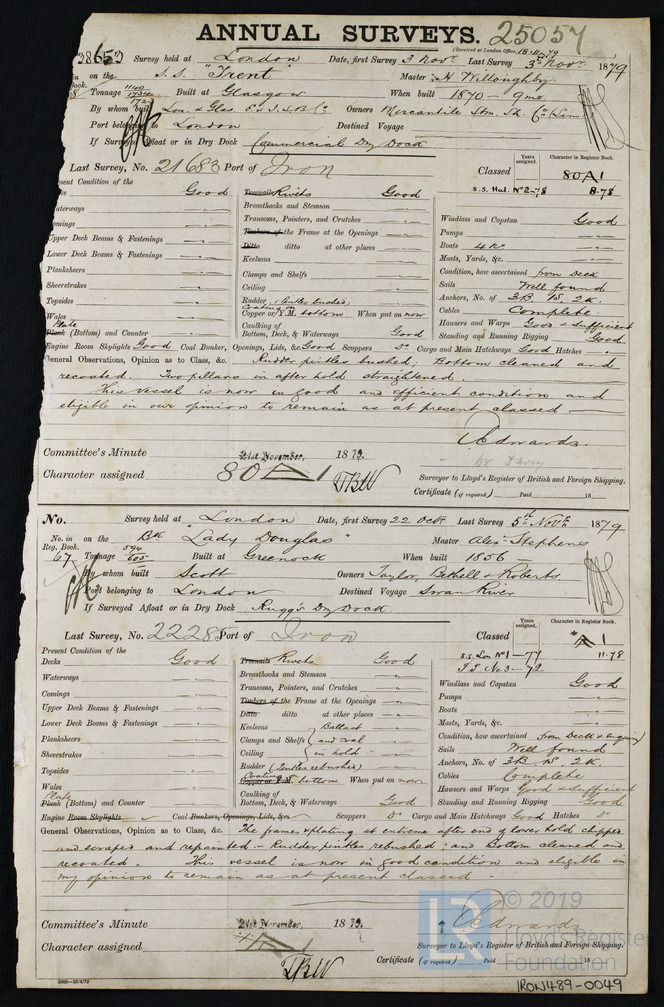 ANNUAL SURVEYS. 25057
(Received at London Office, 18.11.79
Survey held at London Date, first Survey 3 Novr. Last Survey 3rd Novr. 1879
on the S.S. "Trent" Master H Willoughby
Tonnage Built at Glasgow When built 1870 - 9 mo.
By whom built Lon. & Glas. E. & I.S.B. Co Owners Mercantile Stm. Sh. Co (Lim
Port belonging to London Destined Voyage
If Surveyed Afloat or in Dry Dock Commercial Dry Dock
Last Survey, No. 21683 Port of Iron
Classed
Years assigned.
Character in Register Book.
80 A 1
S.S. Hul. No 2-78 8.78
Present Condition of the
Good
Waterways
Comings
Upper Deck Beams & Fastenings
Lower Deck Beams & Fastenings
Planksheers
Sheerstrakes
Topsides
Wales
Plate
Plank (Bottom) and Counter
Treenails Rivets Good
Breasthooks and Stemson
Transoms, Pointers, and Crutches
Timbers of the Frame at the Openings
Ditto ditto at other places
Keelsons
Clamps and Shelfs
Ceiling
Rudder (Pintles bushed)
Coating on
Copper or Y.M. bottom When put on now
Caulking of
Bottom, Deck, & Waterways Good
Windlass and Capstan Good
Pumps
Boats 4 No
Masts, Yards, &c.
Condition, how ascertained from Deck
Sails Well found
Anchors, No. of 3B. 1S. 2K.
Cables Complete
Hawsers and Warps Good & Sufficient
Standing and Running Rigging Good
Engine Room Skylights Good Coal Bunker, Openings, Lids, &c. Good Scuppers Do Cargo and Main Hatchways Good Hatches
General Observations, Opinion as to Class, &c. Rudder pintles bushed; Bottom cleaned and
recoated. Two pillars in after hold straightened.
This vessel is now in good and efficient condition and
eligible in our opinion to remain as at present classed
Edwards.
Committee's Minute 21st November, 1879.
Character assigned 80 A 1
TBW
Surveyor to Lloyd's Register of British and Foreign Shipping.
Certificate (if required) Paid 18
No. Survey held at London Date, first Survey 22 Octr. Last Survey 5th Novr. 1879
No. in Reg. Book. on the Bk "Lady Douglas" Master Alex. Stephens
67 Tonnage 594 605 Built at Greenock When built 1856
By whom built Scott Owners Taylor, Bethell & Roberts
Port belonging to London Destined Voyage Swan River
If Surveyed Afloat or in Dry Dock Rugg's Dry Dock
Last Survey, No. 22285 Port of Iron
Classed
Years assigned.
Character in Register Book.
A 1
S.S. Lon No 1-77 11-78
No. 3-72
Present Condition of the
Decks Good
Waterways
Comings
Upper Deck Beams & Fastenings
Lower Deck Beams & Fastenings
Planksheers
Sheerstrakes
Topsides
Wales
Plate
Plank (Bottom) and Counter
Treenails Rivets Good
Breasthooks and Stemson
Transoms, Pointers, and Crutches
Timbers of the Frame at the Openings
Ditto ditto at other places
Keelsons Ballast
Clamps and Shelfs
Ceiling in hold
Rudder (Pintles rebushed)
Coating on
Copper or Y.M. bottom When put on now
Caulking of
Bottom, Deck, & Waterways Good
Windlass and Capstan Good
Pumps
Boats
Masts, Yards, &c.
Condition, how ascertained from Deck & enquiry
Sails Well found
Anchors, No. of 3B. 1S. 2K.
Cables Complete
Hawsers and Warps Good & Sufficient
Standing and Running Rigging Good
Engine Room Skylights Coal Bunkers, Openings, Lids, &c. Scuppers Do Cargo and Main Hatchways Good Hatches Do
General Observations, Opinion as to Class, &c. The frames & plating at extreme after end of lower hold chipped
and scraped and repainted - Rudder pintles rebushed: and Bottom cleaned and
recoated. This vessel is now in good condition and eligible in
my opinion to remain as at present classed -
Edwards
Committee's Minute 21st November, 1879.
Character assigned A 1
TBW
Surveyor to Lloyd's Register of British and Foreign Shipping.
Certificate (if required) Paid 18
© 2019
Lloyd's Register
Foundation
IRON489-0049